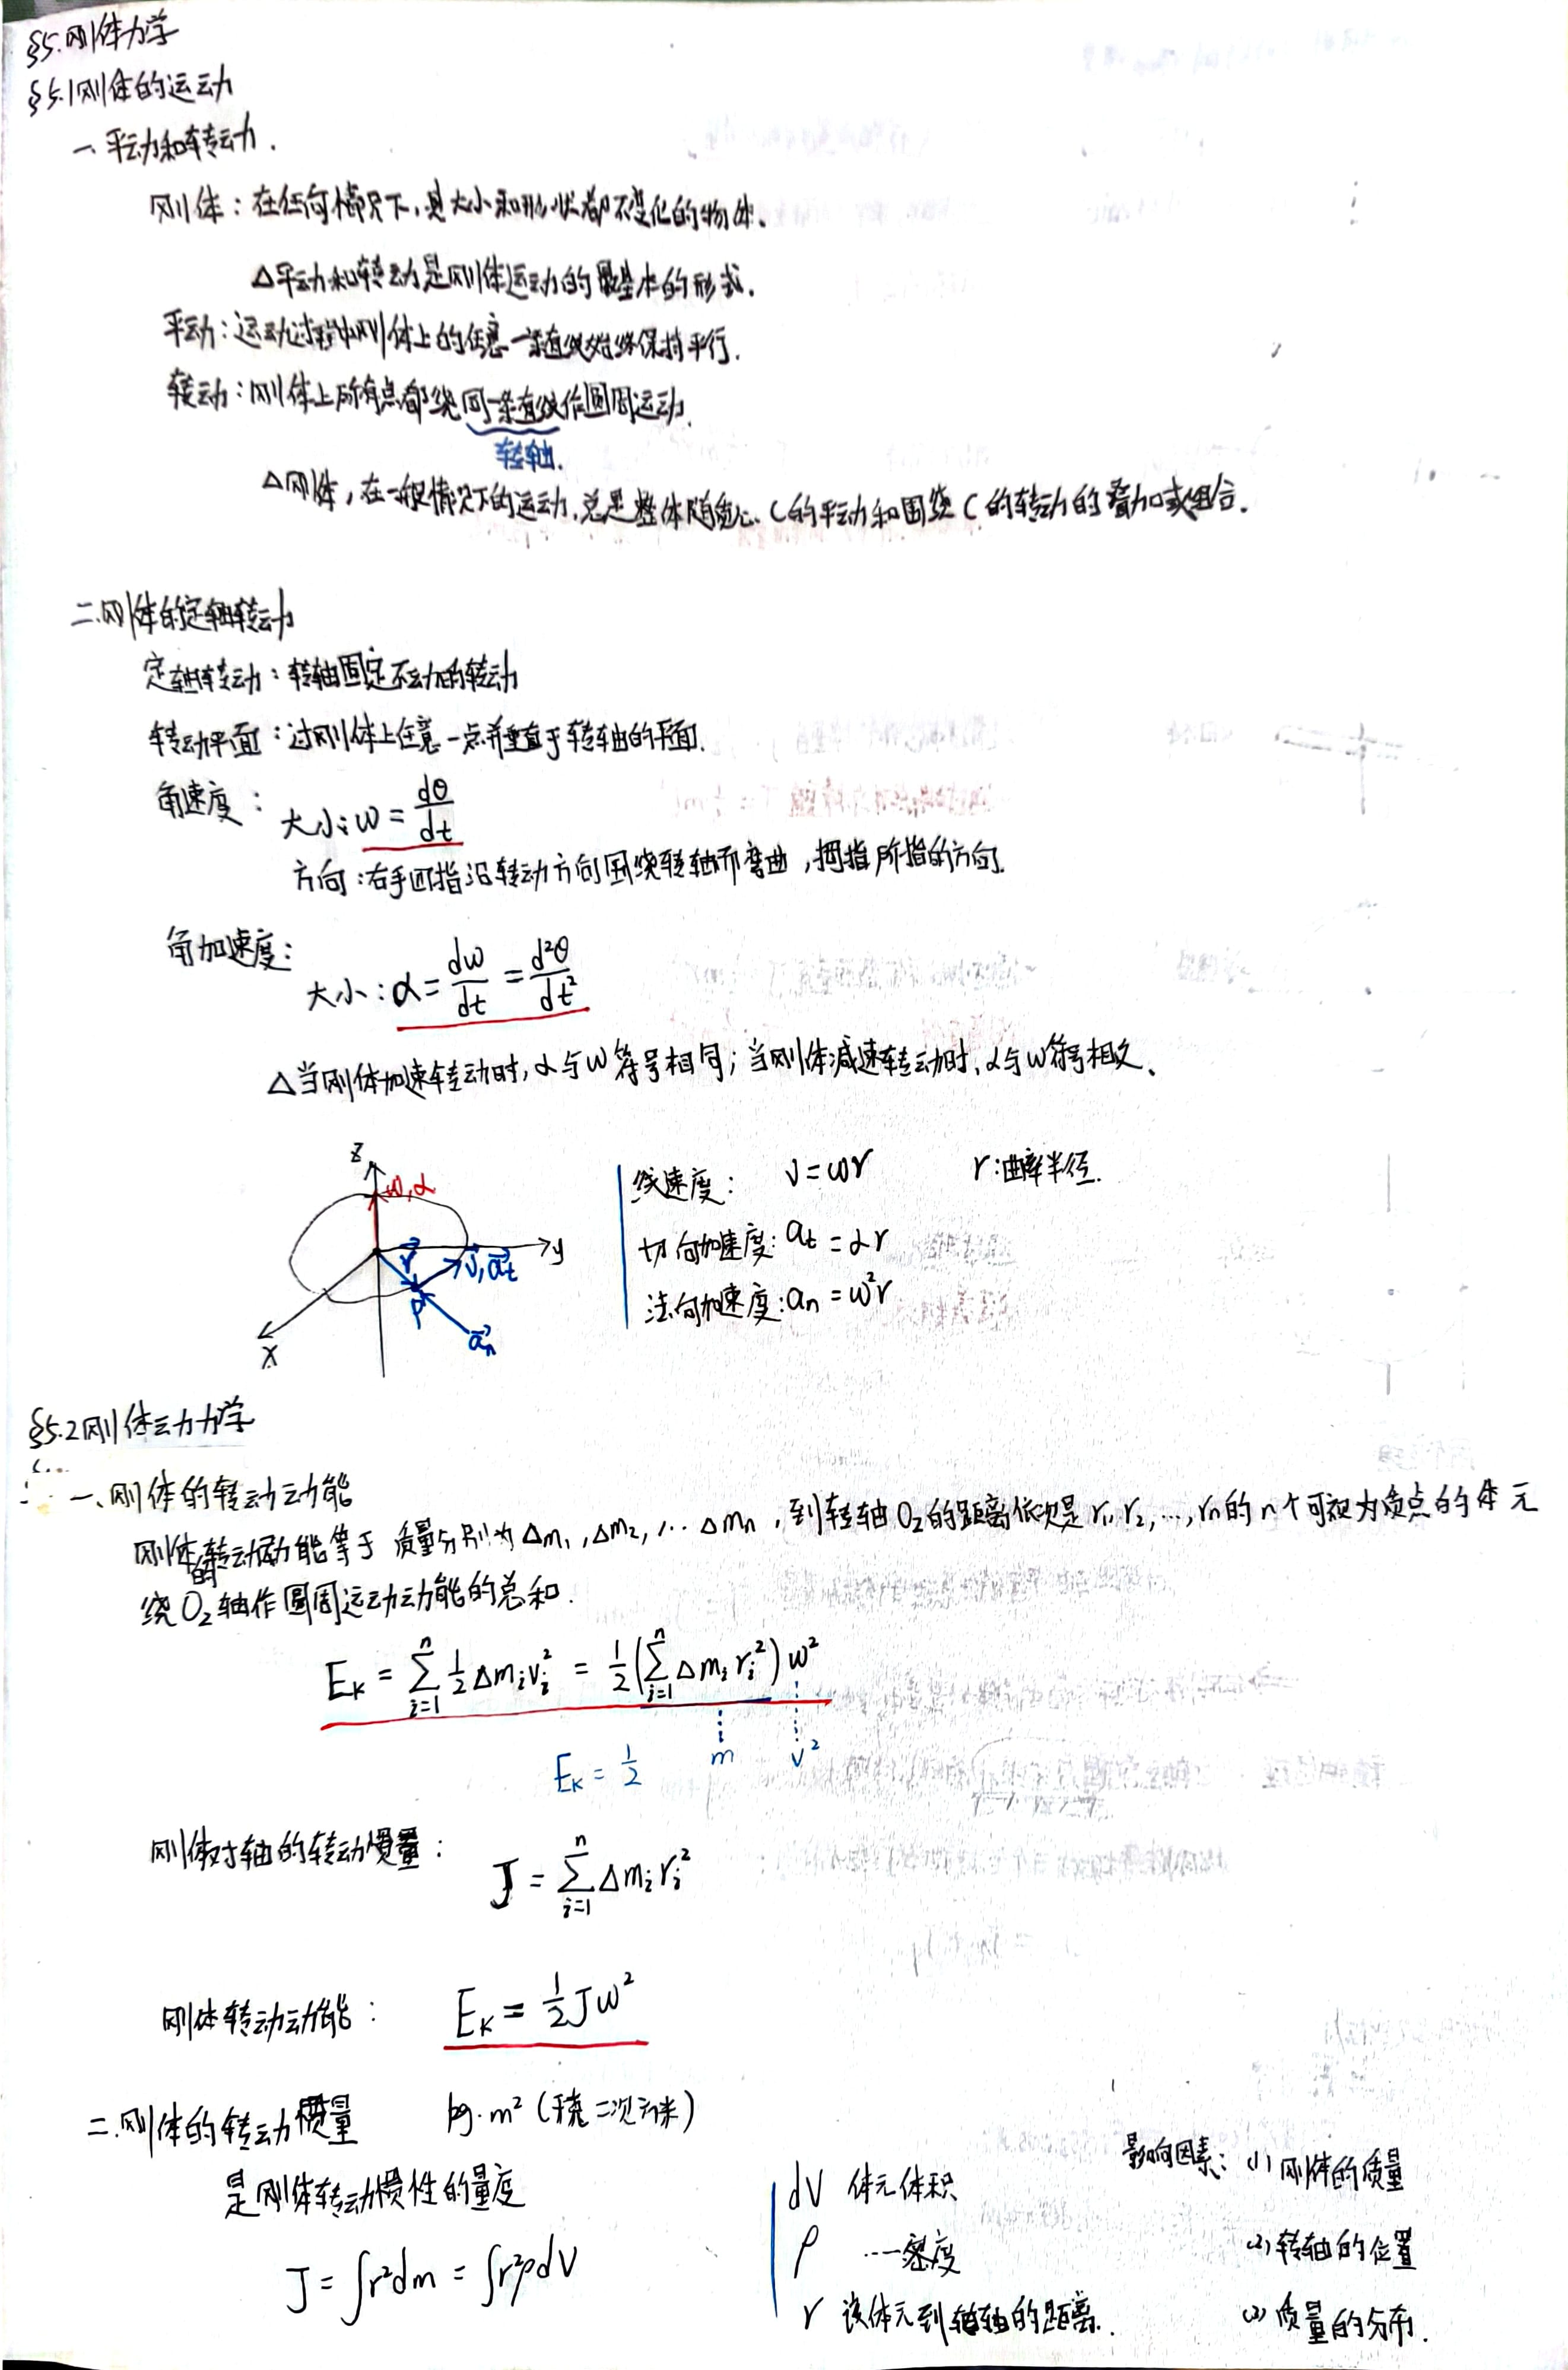 §5.刚体力学
§5.1刚体的运动
一、平动和转动.
刚体：在任何情况下,其大小和形状都不变化的物体.
△平动和转动是刚体运动的最基本的形式.
平动：运动过程中刚体上的任意一条直线始终保持平行.
转动：刚体上所有点都绕同一条直线作圆周运动.
转轴.
△刚体,在一般情况下的运动,总是整体随质心C的平动和围绕C的转动的叠加或组合.
二.刚体的定轴转动
定轴转动：转轴固定不动的转动
转动平面：过刚体上任意一点并垂直于转轴的平面.
角速度：
大小：ω = dθ/dt
方向：右手四指沿转动方向围绕转轴而弯曲,拇指所指的方向.
角加速度：
大小：α = dω/dt = d²θ/dt²
△当刚体加速转动时,α与ω符号相同；当刚体减速转动时,α与ω符号相反.
z
ω,α
y
r⃗
v⃗,a⃗t
P
a⃗n
x
线速度： v = ωr r:曲率半径.
切向加速度：at = αr
法向加速度：an = ω²r
§5.2刚体动力学
一、刚体的转动动能
刚体的转动动能等于质量分别为Δm₁,Δm₂,…Δmn,到转轴Oz的距离依次是r₁,r₂,…,rn的n个可视为质点的体元
绕Oz轴作圆周运动动能的总和.
Eₖ = ∑ⁿᵢ₌₁ ½Δmᵢvᵢ² = ½(∑ⁿᵢ₌₁ Δmᵢrᵢ²)ω²
Eₖ = ½ m v²
刚体对轴的转动惯量： J = ∑ⁿᵢ₌₁ Δmᵢrᵢ²
刚体转动动能： Eₖ = ½Jω²
二.刚体的转动惯量 kg·m² (千克二次方米)
是刚体转动惯性的量度
J = ∫r²dm = ∫r²ρdV
dV 体元体积
ρ ···密度
r 该体元到转轴的距离.
影响因素：(1) 刚体的质量
(2) 转轴的位置
(3) 质量的分布.